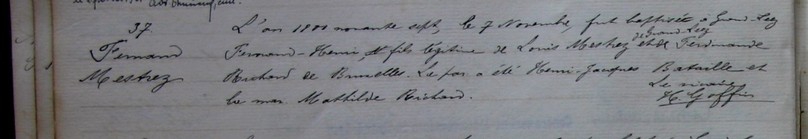 37
Fernand
Mestrez
L'an 1800 nonante sept, le 7 Novembre, fut baptisé à Grand-Leez
Fernand-Henri, fils légitime de Louis Mestrez de Grand Leez et de Ferdinande
Richard de Bruxelles. Le par. a été Henri-Jacques Bataille et
la mar. Mathilde Richard.
Le vicaire
H Goffin